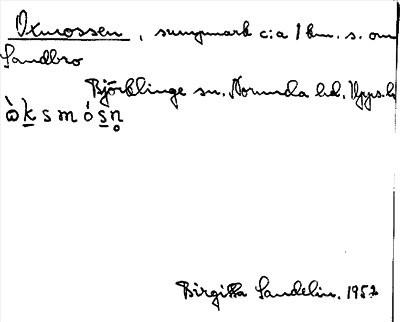 Oxmossen, sumpmark c:a 1 km. s. om
Sandbro
Björklinge sn. Norunda hd. Upps. l
ὼksmósn̥
Birgitta Sandelin. 1952